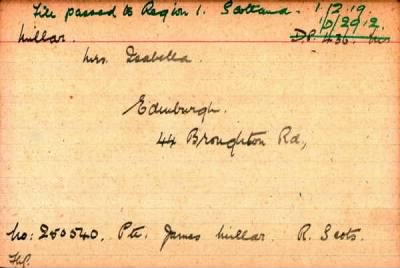 File passed to Region 1. Scotland. 1/2.19.
0/29 12.
Millar.
D.P. 436.
Mrs. Isabella.
Edinburgh.
44 Broughton Rd,
No: 250540. Pte. James Millar. R. Scots.